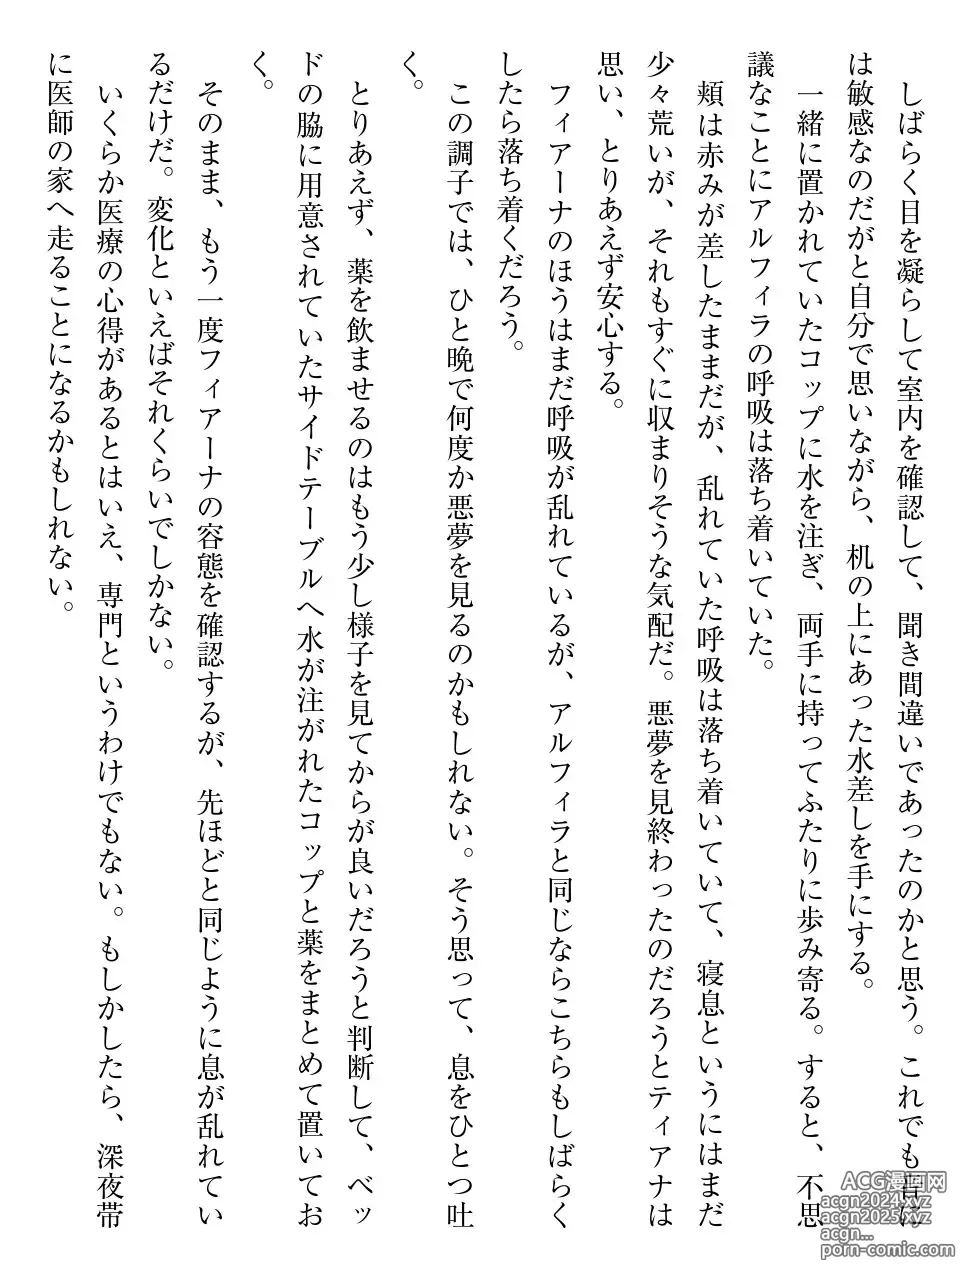 しばらく目を凝らして室内を確認して、聞き間違いであったのかと思う。これでも音に
は敏感なのだがと自分で思いながら、机の上にあった水差しを手にする。
一緒に置かれていたコップに水を注ぎ、両手に持ってふたりに歩み寄る。すると、不思
議なことにアルフィラの呼吸は落ち着いていた。
頬は赤みが差したままだが、乱れていた呼吸は落ち着いていて、寝息というにはまだ
少々荒いが、それもすぐに収まりそうな気配だ。悪夢を見終わったのだろうとティアナは
思い、とりあえず安心する。
フィアーナのほうはまだ呼吸が乱れているが、アルフィラと同じならこちらもしばらく
したら落ち着くだろう。
この調子では、ひと晩で何度か悪夢を見るのかもしれない。そう思って、息をひとつ吐
く。
とりあえず、薬を飲ませるのはもう少し様子を見てからが良いだろうと判断して、ベッ
ドの脇に用意されていたサイドテーブルへ水が注がれたコップと薬をまとめて置いてお
く。
そのまま、もう一度フィアーナの容態を確認するが、先ほどと同じように息が乱れてい
るだけだ。変化といえばそれくらいでしかない。
いくらか医療の心得があるとはいえ、専門というわけでもない。もしかしたら、深夜帯
に医師の家へ走ることになるかもしれない。
ACG漫画网
acgn2024.xyz
acgn2025.xyz
acgn...
porn-comic.com